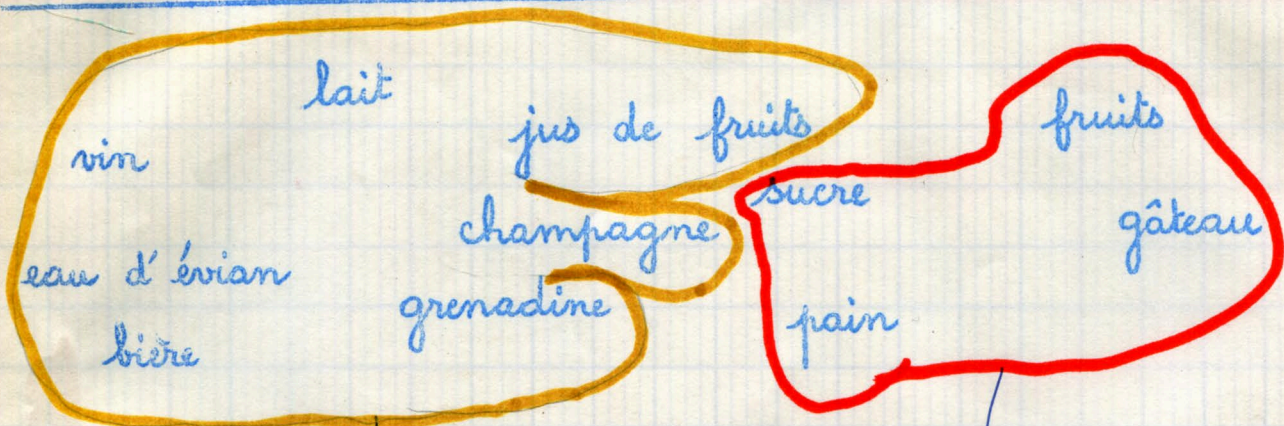 lait
jus de fruits
vin
champagne
eau d'évian
grenadine
bière
fruits
sucre
gâteau
pain